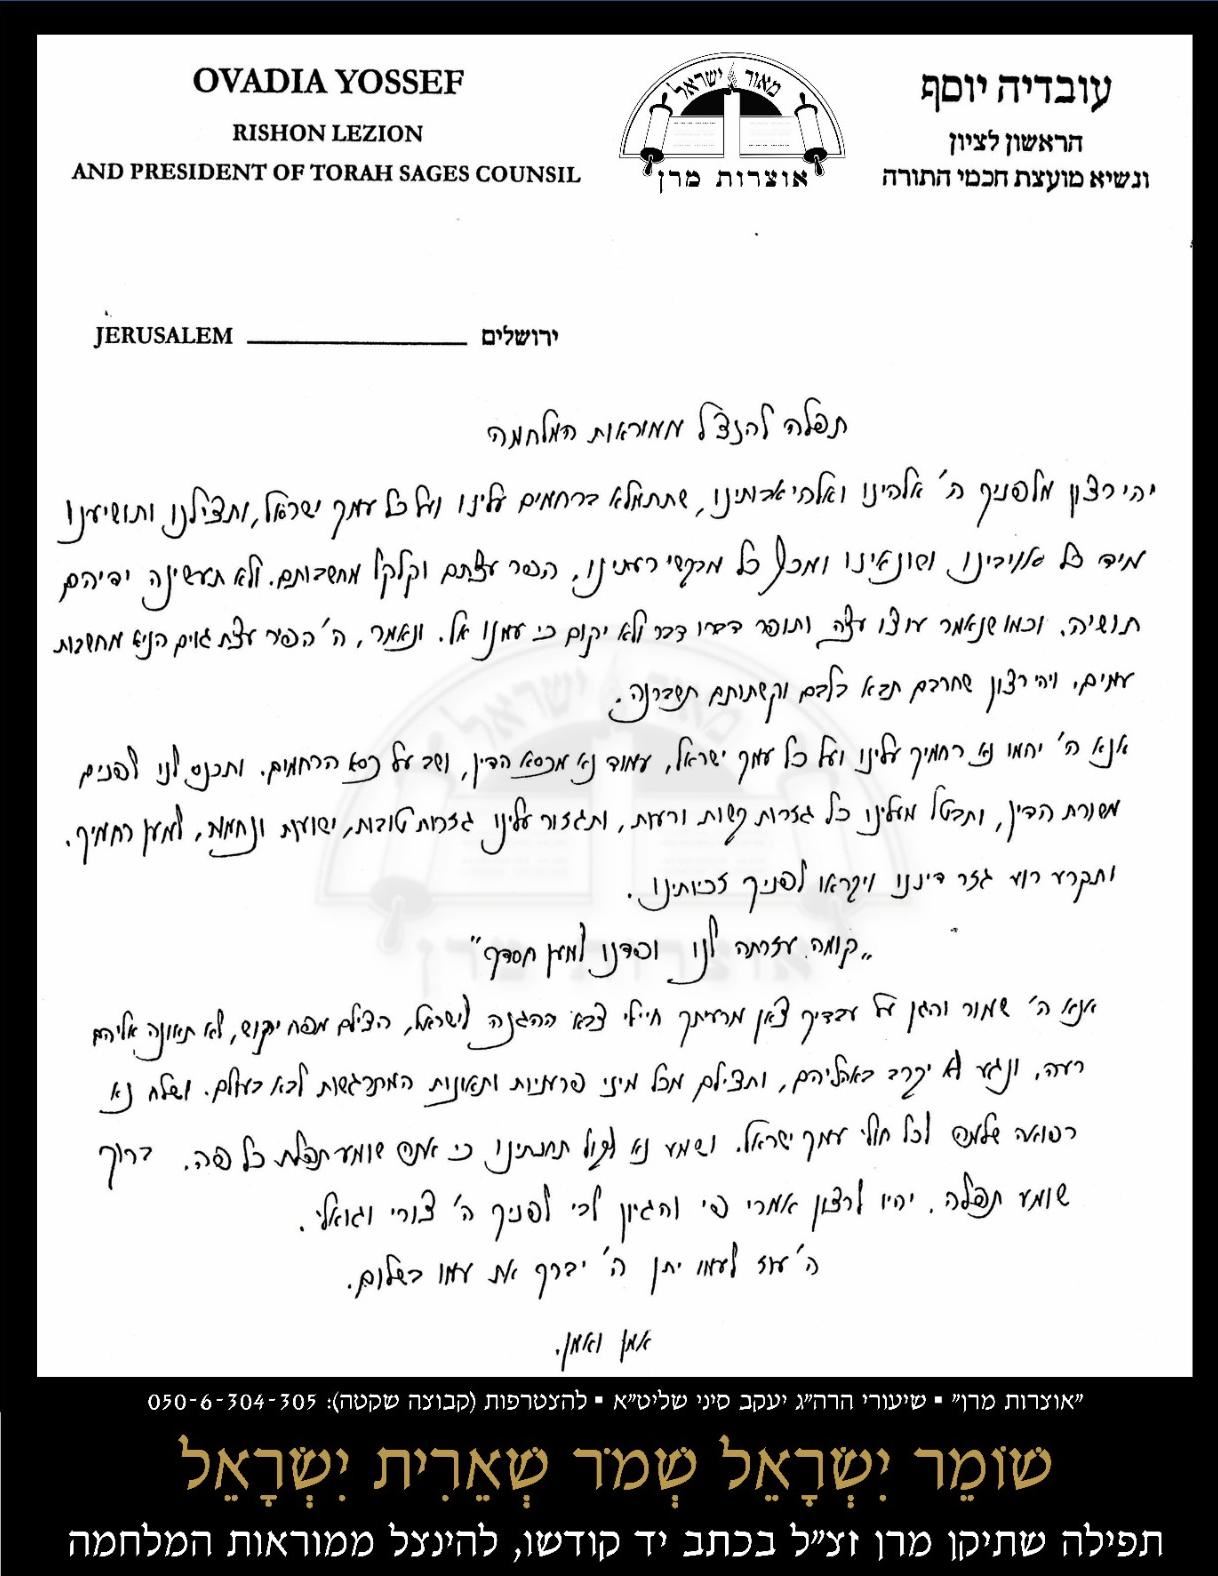 OVADIA YOSSEF
RISHON LEZION
AND PRESIDENT OF TORAH SAGES COUNSIL
מאור ישראל
אוצרות מרן
עובדיה יוסף
הראשון לציון
ונשיא מועצת חכמי התורה
JERUSALEM ____________ ירושלים
תפלה להנצל ממוראות המלחמה
יהי רצון מלפניך ה' אלהינו ואלהי אבותינו, שתתמלא ברחמים עלינו ועל כל עמך ישראל, ותצילנו ותושיענו
מיד כל אויבינו ושונאינו ומכל מבקשי רעתינו, הפר עצתם וקלקל מחשבותם. ולא תעשינה ידיהם
תושיה. וכמו שנאמר עוצו עצה ותופר דברו דבר ולא יקום כי עמנו אל. ונאמר, ה' הפיר עצת גוים הניא מחשבות
עמים. ויהי רצון שחרבם תבא בלבם וקשתותם תשברנה.
אנא ה' יהמו נא רחמיך עלינו ועל כל עמך ישראל, עמוד נא מכסא הדין, ושב על כסא הרחמים. ותכנס לנו לפנים
משורת הדין, ותבטל מעלינו כל גזרות קשות ורעות, ותגזור עלינו גזרות טובות, ישועות ונחמות, למען רחמיך.
ותקרע רוע גזר דיננו ויקראו לפניך זכיותינו.
"קומה עזרתה לנו ופדנו למען חסדך"
אנא ה' שמור והגן על עבדיך צאן מרעיתך חיילי צבא ההגנה לישראל, הצילם מפח יקוש, לא תאונה אליהם
רעה, ונגע לא יקרב באהליהם, ותצילם מכל מיני פרעניות ותאונות המתרגשות לבא בעולם. ושלח נא
רפואה שלמה לכל חולי עמך ישראל. ושמע נא לקול תחנתינו כי אתה שומע תפלת כל פה. ברוך
שומע תפלה. יהיו לרצון אמרי פי והגיון לבי לפניך ה' צורי וגואלי.
ה' עוז לעמו יתן ה' יברך את עמו בשלום.
אמן ואמן.
"אוצרות מרן" ▪ שיעורי הרה"ג יעקב סיני שליט"א ▪ להצטרפות (קבוצה שקטה): 050-6-304-305
שׁוֹמֵר יִשְׂרָאֵל שְׁמֹר שְׁאֵרִית יִשְׂרָאֵל
תפילה שתיקן מרן זצ"ל בכתב יד קודשו, להינצל ממוראות המלחמה